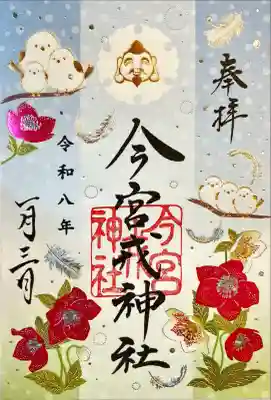 奉拝
今宮戎神社
今宮
神社
令和八年
一月三日